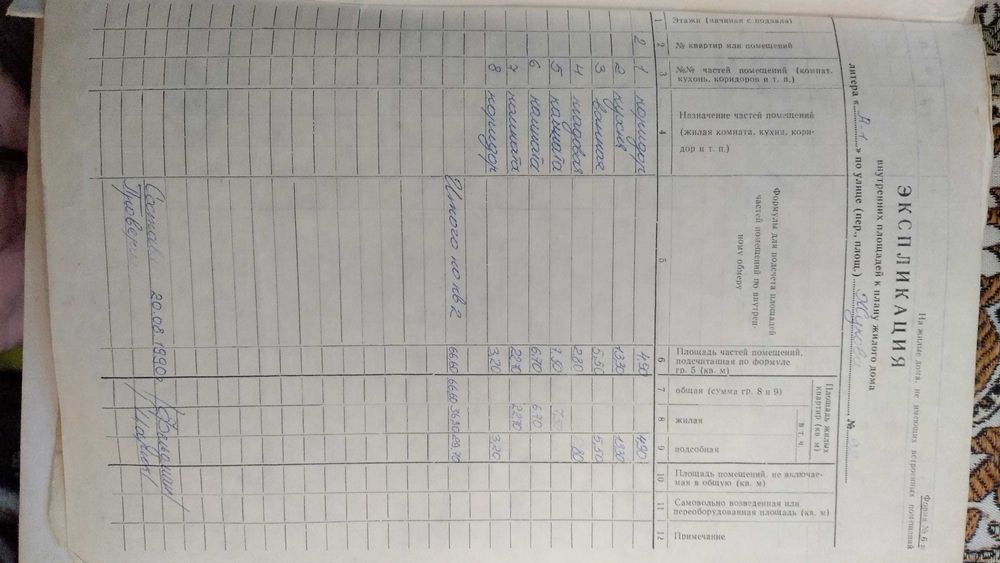 Форма № 6 в
На жилые дома, не имеющих встроенных помещений
ЭКСПЛИКАЦИЯ
внутренних площадей к плану жилого дома
литера «А-1» по улице (пер., площ.) Жукова №
Этажи (начиная с подвала)
№ квартир или помещений
№№ частей помещений (комнат, кухонь, коридоров и т. п.)
Назначение частей помещений (жилая комната, кухни, коридор и т. п.)
Формулы для подсчета площадей частей помещений по внутреннему обмеру
Площадь частей помещений, подсчитанная по формуле гр. 5 (кв. м)
Площадь жилых квартир (кв м)
общая (сумма гр. 8 и 9)
в т. ч
жилая
подсобная
Площадь помещений, не включаемая в общую (кв. м)
Самовольно возведенная или переоборудованная площадь (кв. м)
Примечание
1 2 3 4 5 6 7 8 9 10 11 12
2 1 коридор 4.90 4.90
2 кухня 13.30 13.30
3 5.50 5.50
4 кладовая 2.80 2.80
5 комната 7.80 7.80
6 комната 6.70 6.70
7 комната 22.40 22.40
8 коридор 3.20 3.20
Итого по кв 2 66.60 66.60 36.90 29.70
Составил 20.08.1990г
Проверил